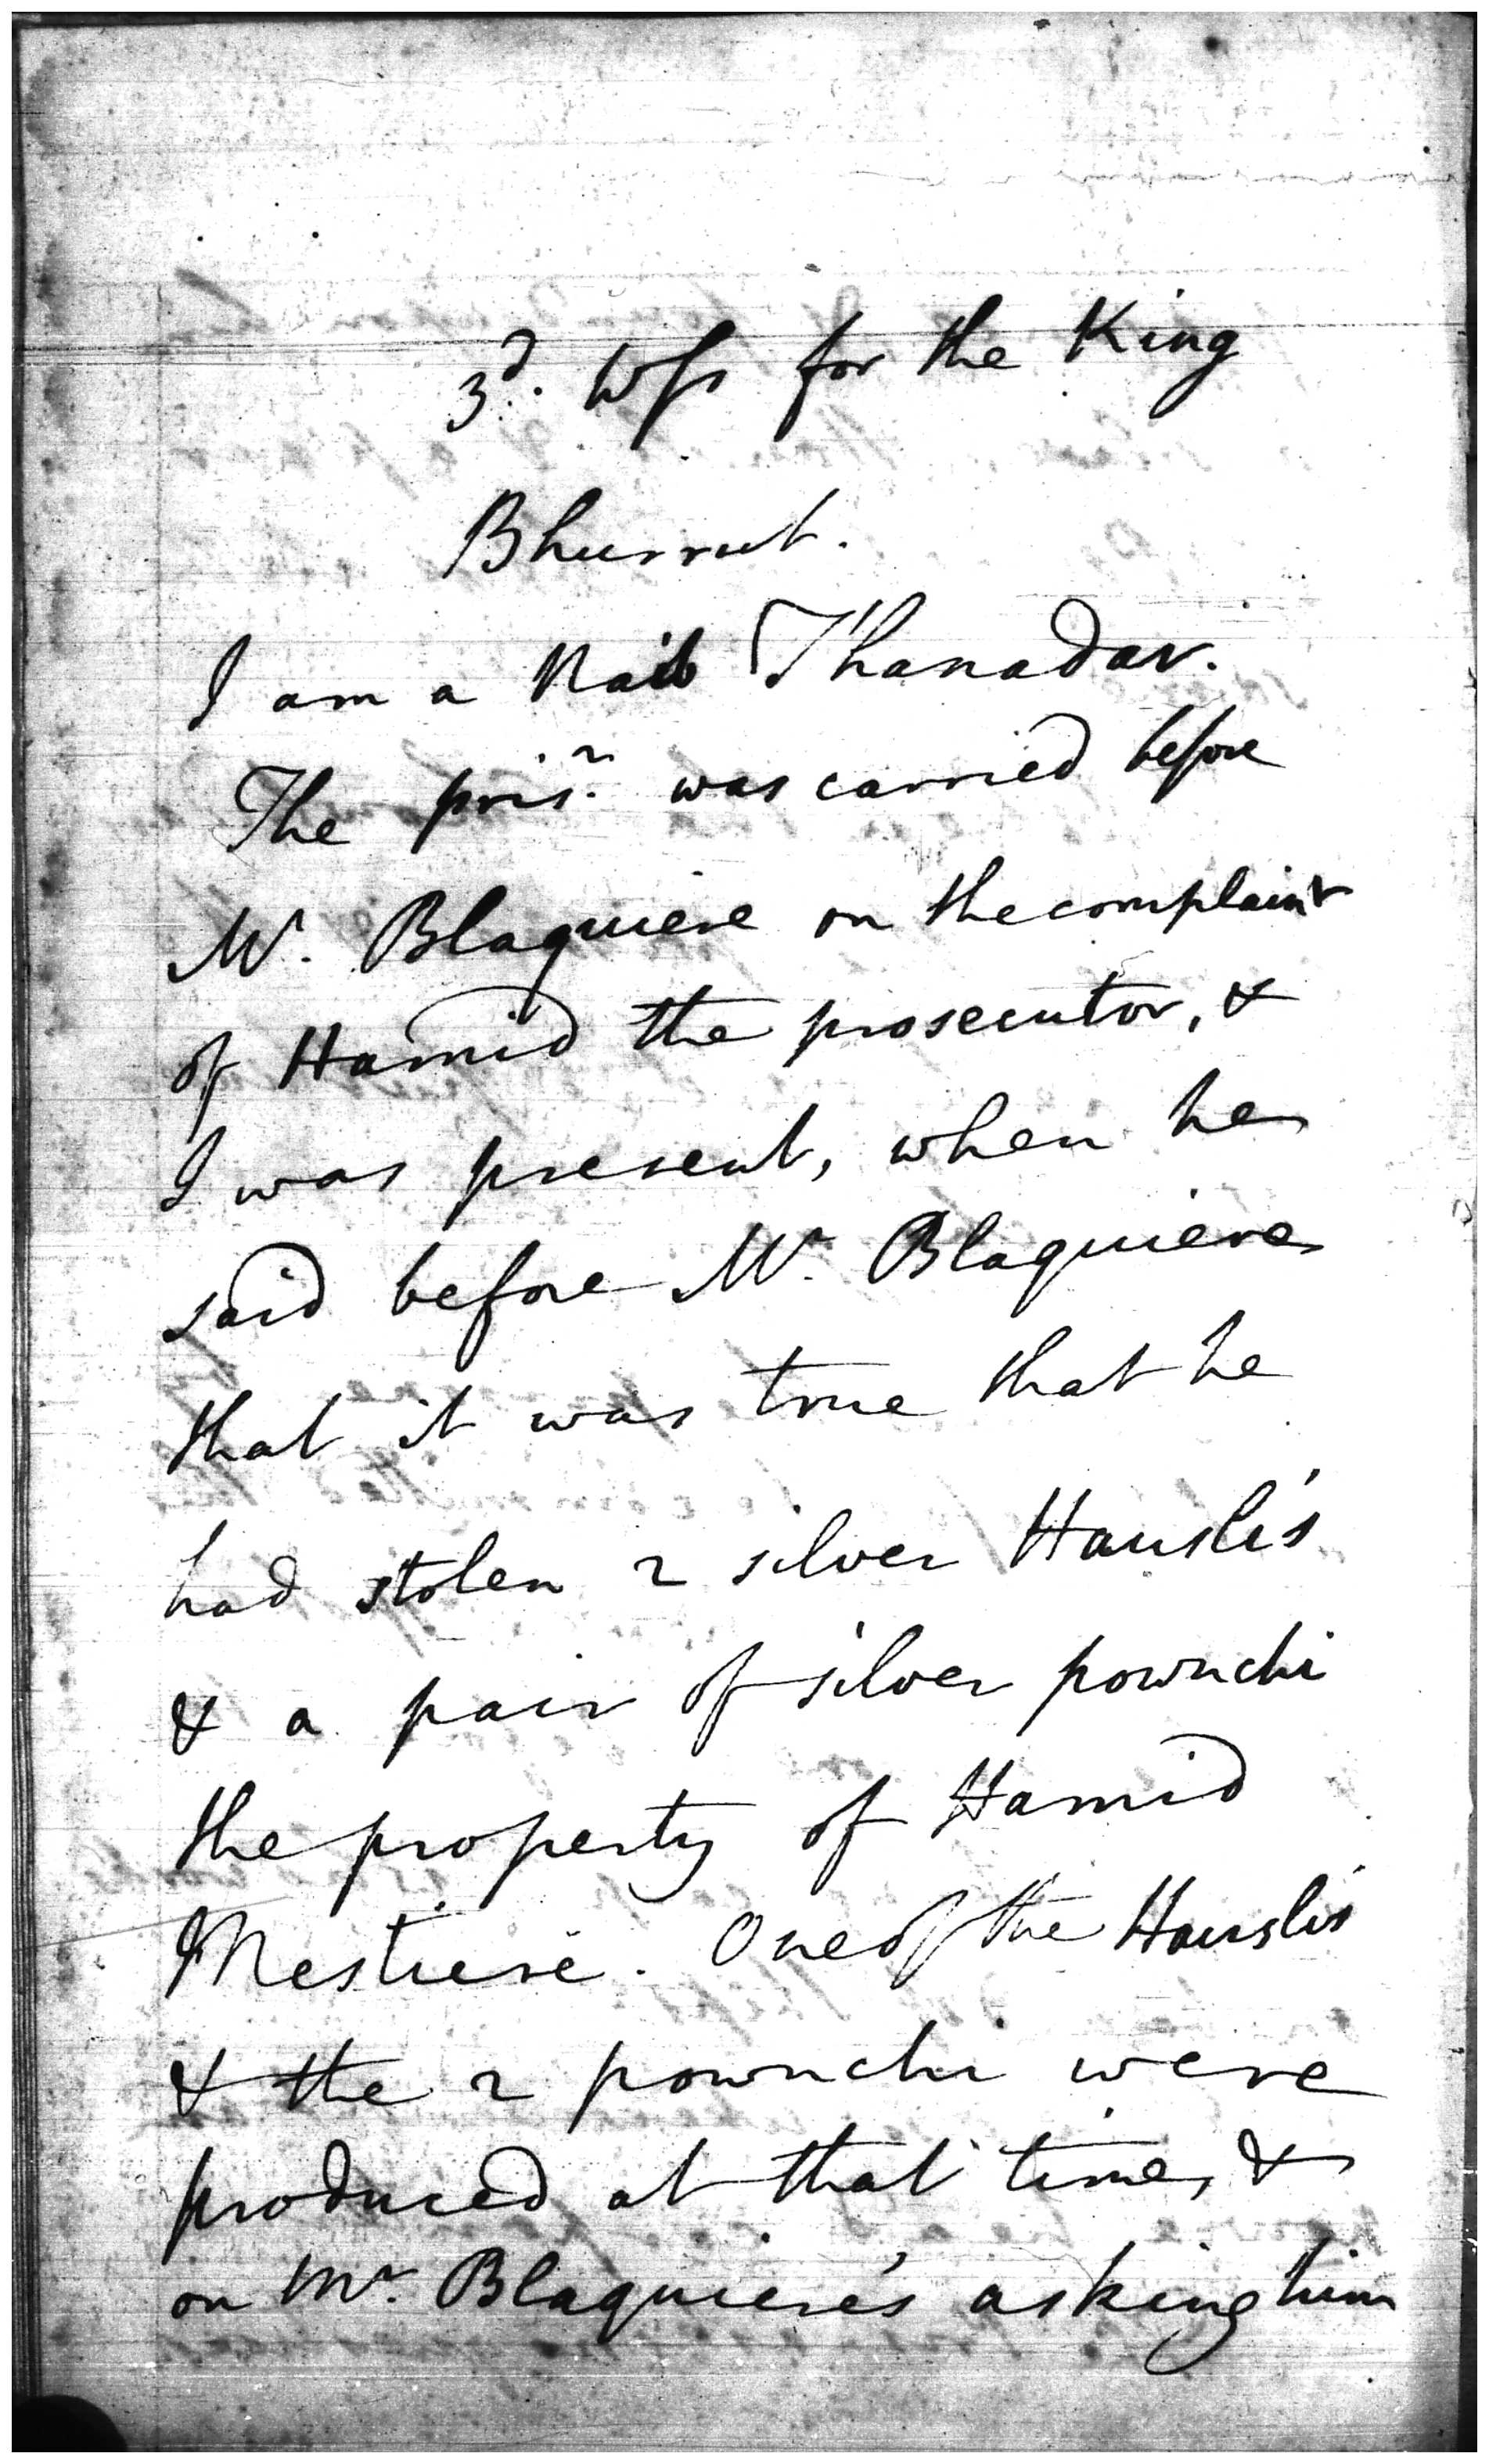 3d. Wss for the King
Bhurrut.
I am a Naib Thanadar.
The prisr. was carried before
Mr. Blaquiere on the complaint
of Hamid the prosecutor, &
I was present, when he
said before Mr. Blaquiere
that it was true that he
had stolen 2 silver Hansli's
& a pair of silver pownchi
the property of Hamid
Mestiere. One of the Hanslis
& the 2 pownchi were
produced at that time, &
on Mr. Blaquiere's asking him